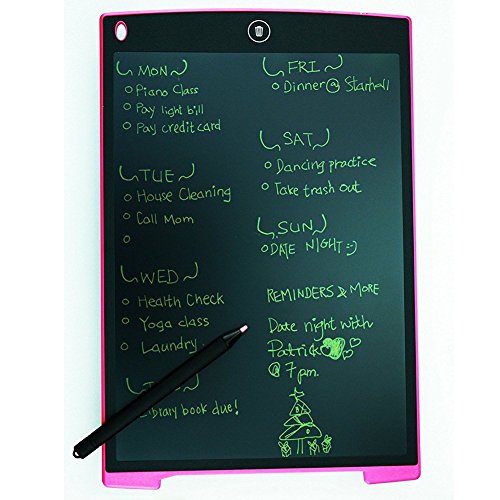 MON
Piano Class
Pay light bill
Pay credit card
TUE
House Cleaning
Call Mom
WED
Health Check
Yoga class
Laundry
Library book due!
FRI
Dinner @ Starhall
SAT
Dancing practice
Take trash out
SUN
DATE NIGHT :)
REMINDERS & MORE
Date night with
Patrick
@ 7 pm.